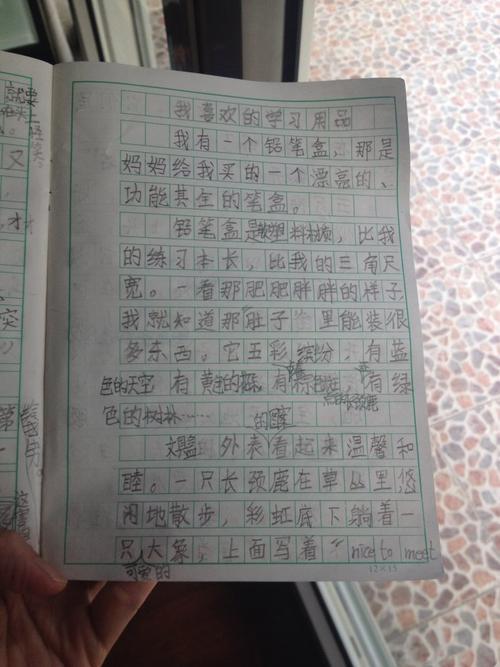 我喜欢的学习用品
我有一个铅笔盒，那是
妈妈给我买的一个漂亮的、
功能其全的笔盒。
铅笔盒是塑料材质，比我
的练习本长，比我的三角尺
宽。一看那肥肥胖胖的样子
我就知道那肚子里能装很
多东西。它五彩缤纷，有蓝
色的天空 有黄色的 有 有绿
色的树林……
文具盒外表看起来温馨和
睦。一只长颈鹿在草丛里，悠
闲地散步，彩虹底下躺着一
只大象，上面写着“nice to meet
可爱的
12×15